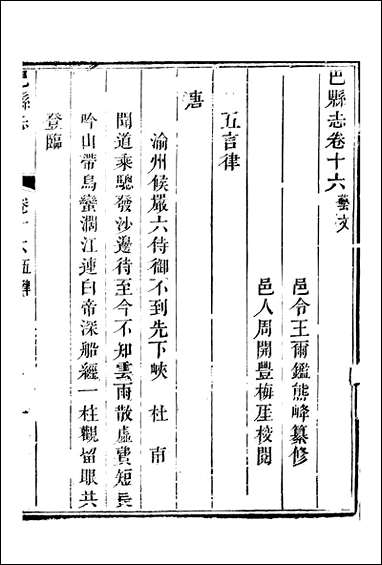 巴縣志卷十六 藝文
邑令王爾鑑熊峰纂修
邑人周開豐梅厓校閱
五言律
唐
渝州候嚴六侍御不到先下峽 杜甫
聞道乘驄發沙邊待至今不知雲雨散虛費短長
吟山帶烏蠻濶江連白帝深船經一柱觀留眼共
登臨
巴縣志 卷十六 五律 一